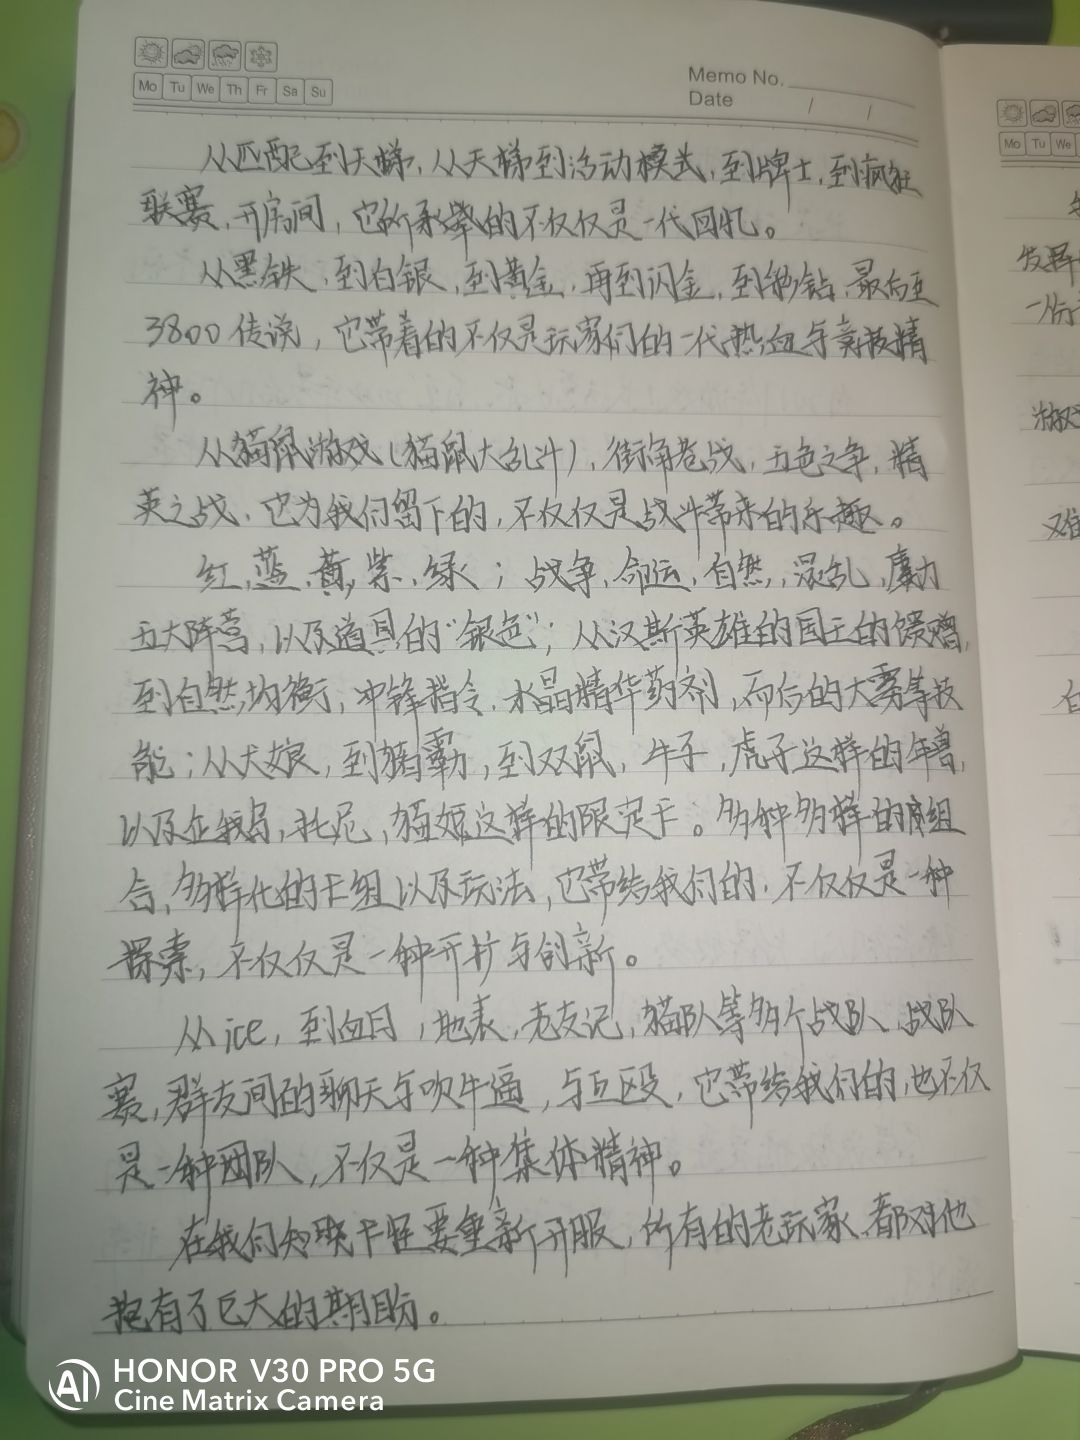 Mo Tu We Th Fr Sa Su
Memo No.
Date / /
从匹配到天梯,从天梯到活动模式,到牌士,到疯狂
联赛,开房间,它所承载的不仅仅是一代回忆。
从黑铁,到白银,到黄金,再到闪金,到钻,最后至
3800传说,它带着的不仅是玩家们的一代热血与竞技精
神。
从猫鼠游戏(猫鼠大乱斗),街角巷战,五色之争,精
英之战,它为我们留下的,不仅仅是战斗带来的乐趣。
红,蓝,黄,紫,绿;战争,命运,自然,混乱,魔力
五大阵营,以及道具的“银色”;从汉斯英雄的国王的馈赠,
到自然均衡,冲锋指令,水晶精华药剂,而后的大雾等技
能;从犬娘,到猪霸,到双鼠,牛子,虎子这样的年兽,
以及企鹅岛,托尼,猫姬这样的限定卡。多种多样的组
合,多样化的卡组以及玩法,它带给我们的,不仅仅是一种
探索,不仅仅是一种开扩与创新。
从ice,到血月,地表,老友记,猫队等多个战队,战队
赛,群友间的聊天与吹牛逼,与互殴,它带给我们的,也不仅
是一种团队,不仅是一种集体精神。
在我们知晓卡怪要重新开服,所有的老玩家,都对他
抱有了巨大的期盼。
Mo Tu We
发挥
一份
游戏
难
HONOR V30 PRO 5G
Cine Matrix Camera